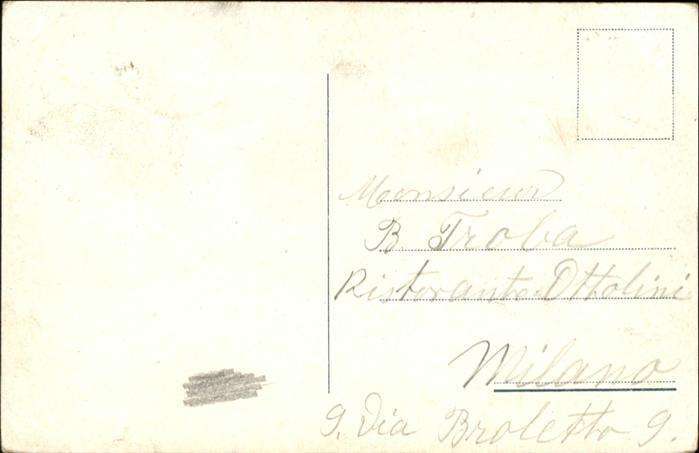 Monsieur
B Troba
Ristorante Ottolini
Milano
9. Via Broletto 9.